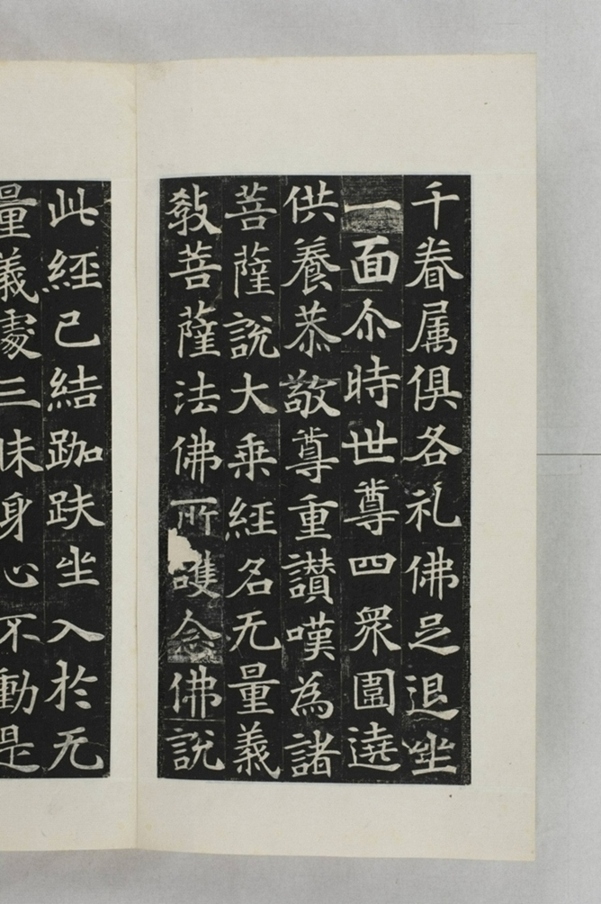 千眷属俱各礼佛足退坐
一面尒時世尊四衆圍遶
供養恭敬尊重讃嘆為諸
菩薩說大乗經名无量義
教菩薩法佛所護念佛說
此經已結跏趺坐入於无
量義處三昧身心不動是